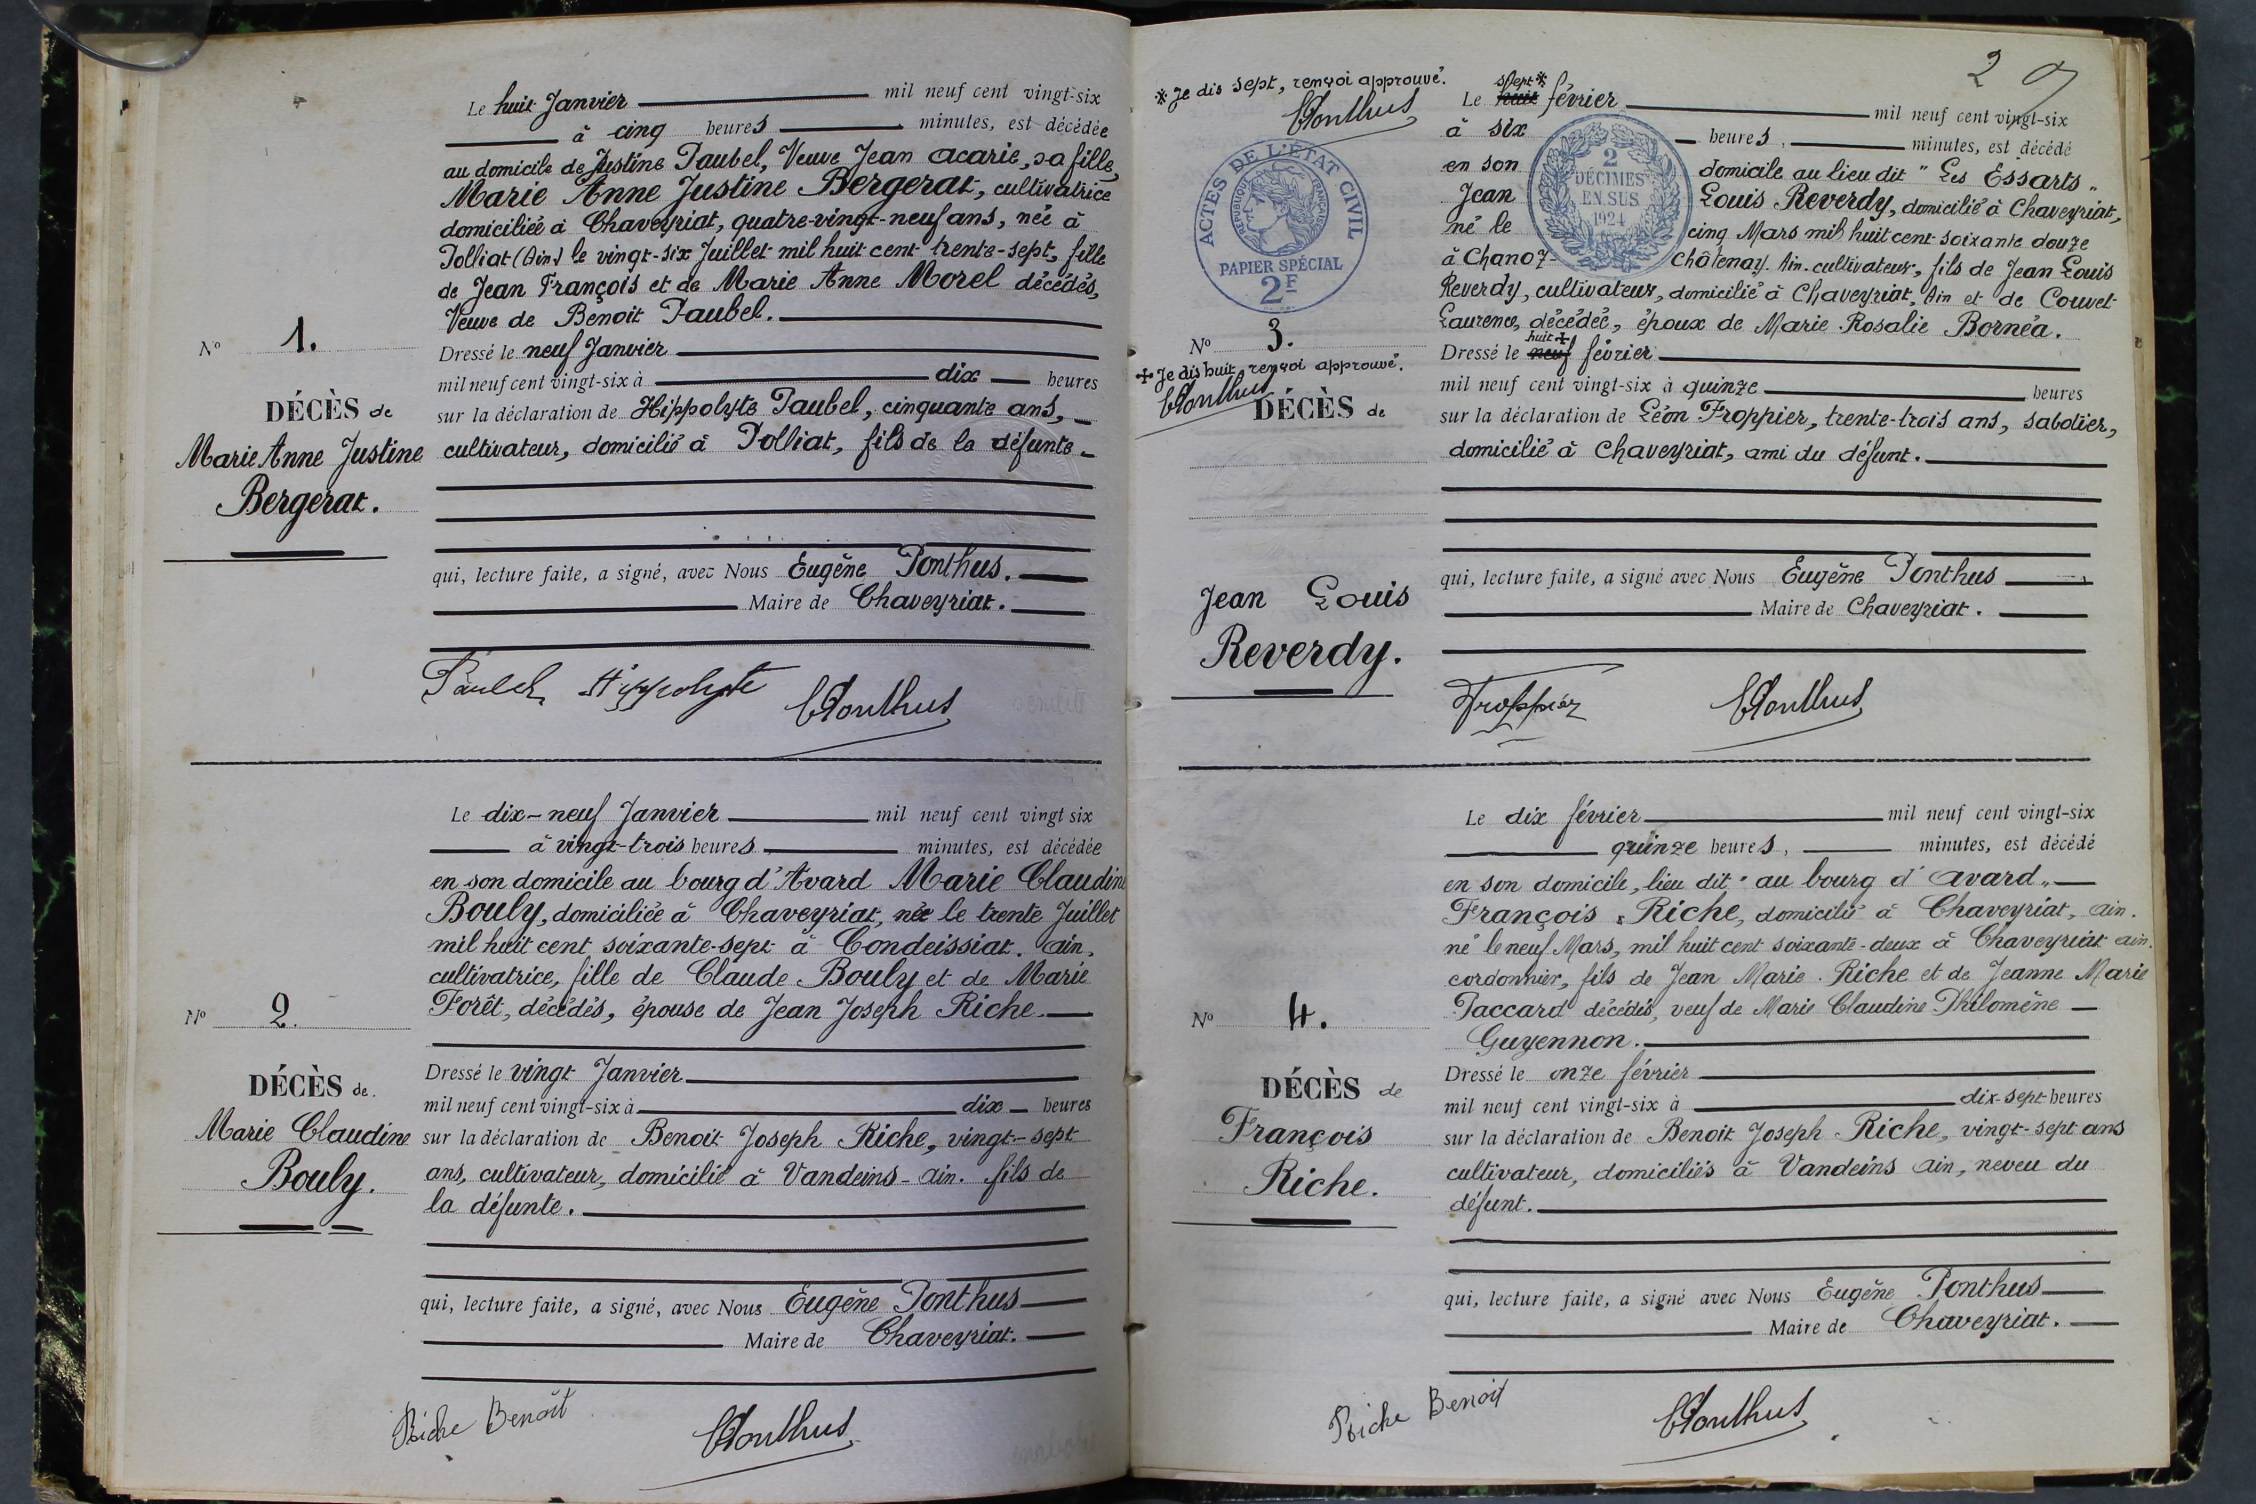 Le huit Janvier mil neuf cent vingt-six
à cinq heures minutes, est décédée
au domicile de Justine Paubel, Veuve Jean Acarie, sa fille,
Marie Anne Justine Bergerat, cultivatrice
domiciliée à Chaveyriat, quatre-vingt-neuf ans, née à
Polliat (Ain) le vingt-six Juillet mil huit cent trente-sept, fille
de Jean François et de Marie Anne Morel décédés,
Veuve de Benoit Paubel.
N° 1.
Dressé le neuf Janvier
mil neuf cent vingt-six à dix heures
DÉCÈS de
sur la déclaration de Hippolyte Paubel, cinquante ans,
Marie Anne Justine
cultivateur, domicilié à Polliat, fils de la défunte
Bergerat.
qui, lecture faite, a signé, avec Nous Eugène Ponthus.
Maire de Chaveyriat.
Paubel Hippolyte
EPonthus
Le dix-neuf Janvier mil neuf cent vingt six
à vingt-trois heures minutes, est décédée
en son domicile au bourg d'Avard Marie Claudine
Bouly, domiciliée à Chaveyriat, née le trente Juillet
mil huit cent soixante-sept à Condeissiat. Ain,
cultivatrice, fille de Claude Bouly et de Marie
Forêt, décédés, épouse de Jean Joseph Riche.
N° 2.
Dressé le vingt Janvier
mil neuf cent vingt-six à dix heures
DÉCÈS de
sur la déclaration de Benoit Joseph Riche, vingt-sept
Marie Claudine
ans, cultivateur, domicilié à Vandeins - Ain. fils de
Bouly.
la défunte.
qui, lecture faite, a signé, avec Nous Eugène Ponthus
Maire de Chaveyriat.
Riche Benoit
EPonthus
2
* Je dis sept, renvoi approuvé.
EPonthus
sept*
Le huit février mil neuf cent vingt-six
à six heures, minutes, est décédé
en son domicile au lieu dit "Les Essarts"
Jean Louis Reverdy, domicilié à Chaveyriat,
né le cinq Mars mil huit cent soixante douze
à Chanoz Châtenay. Ain. cultivateur, fils de Jean Louis
Reverdy, cultivateur, domicilié à Chaveyriat, Ain et de Couvet
Laurence, décédée, époux de Marie Rosalie Bornéa.
ACTES DE L'ÉTAT CIVIL
RÉPUBLIQUE FRANÇAISE
PAPIER SPÉCIAL
2F
2
DÉCIMES
EN SUS
1924
N° 3.
huit +
Dressé le neuf février
+ Je dis huit, renvoi approuvé.
EPonthus
mil neuf cent vingt-six à quinze heures
DÉCÈS de
sur la déclaration de Léon Froppier, trente-trois ans, sabotier,
domicilié à Chaveyriat, ami du défunt.
qui, lecture faite, a signé avec Nous Eugène Ponthus
Jean Louis
Maire de Chaveyriat.
Reverdy.
Froppier
EPonthus
Le dix février mil neuf cent vingt-six
quinze heures, minutes, est décédé
en son domicile, lieu dit "au bourg d'Avard"
François Riche, domicilié à Chaveyriat, Ain.
né le neuf Mars, mil huit cent soixante-deux à Chaveyriat Ain.
cordonnier, fils de Jean Marie Riche et de Jeanne Marie
Paccard décédés, veuf de Marie Claudine Philomène
N° 4.
Guyennon.
Dressé le onze février
DÉCÈS de
mil neuf cent vingt-six à dix-sept heures
François
sur la déclaration de Benoit Joseph Riche, vingt-sept ans
cultivateur, domiciliés à Vandeins Ain, neveu du
Riche.
défunt.
qui, lecture faite, a signé avec Nous Eugène Ponthus
Maire de Chaveyriat.
Riche Benoit
EPonthus